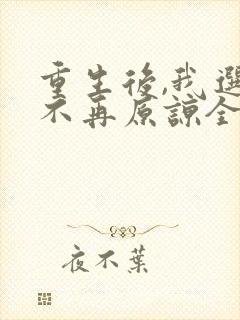 重生後,我選
不再原諒全
夜不葉